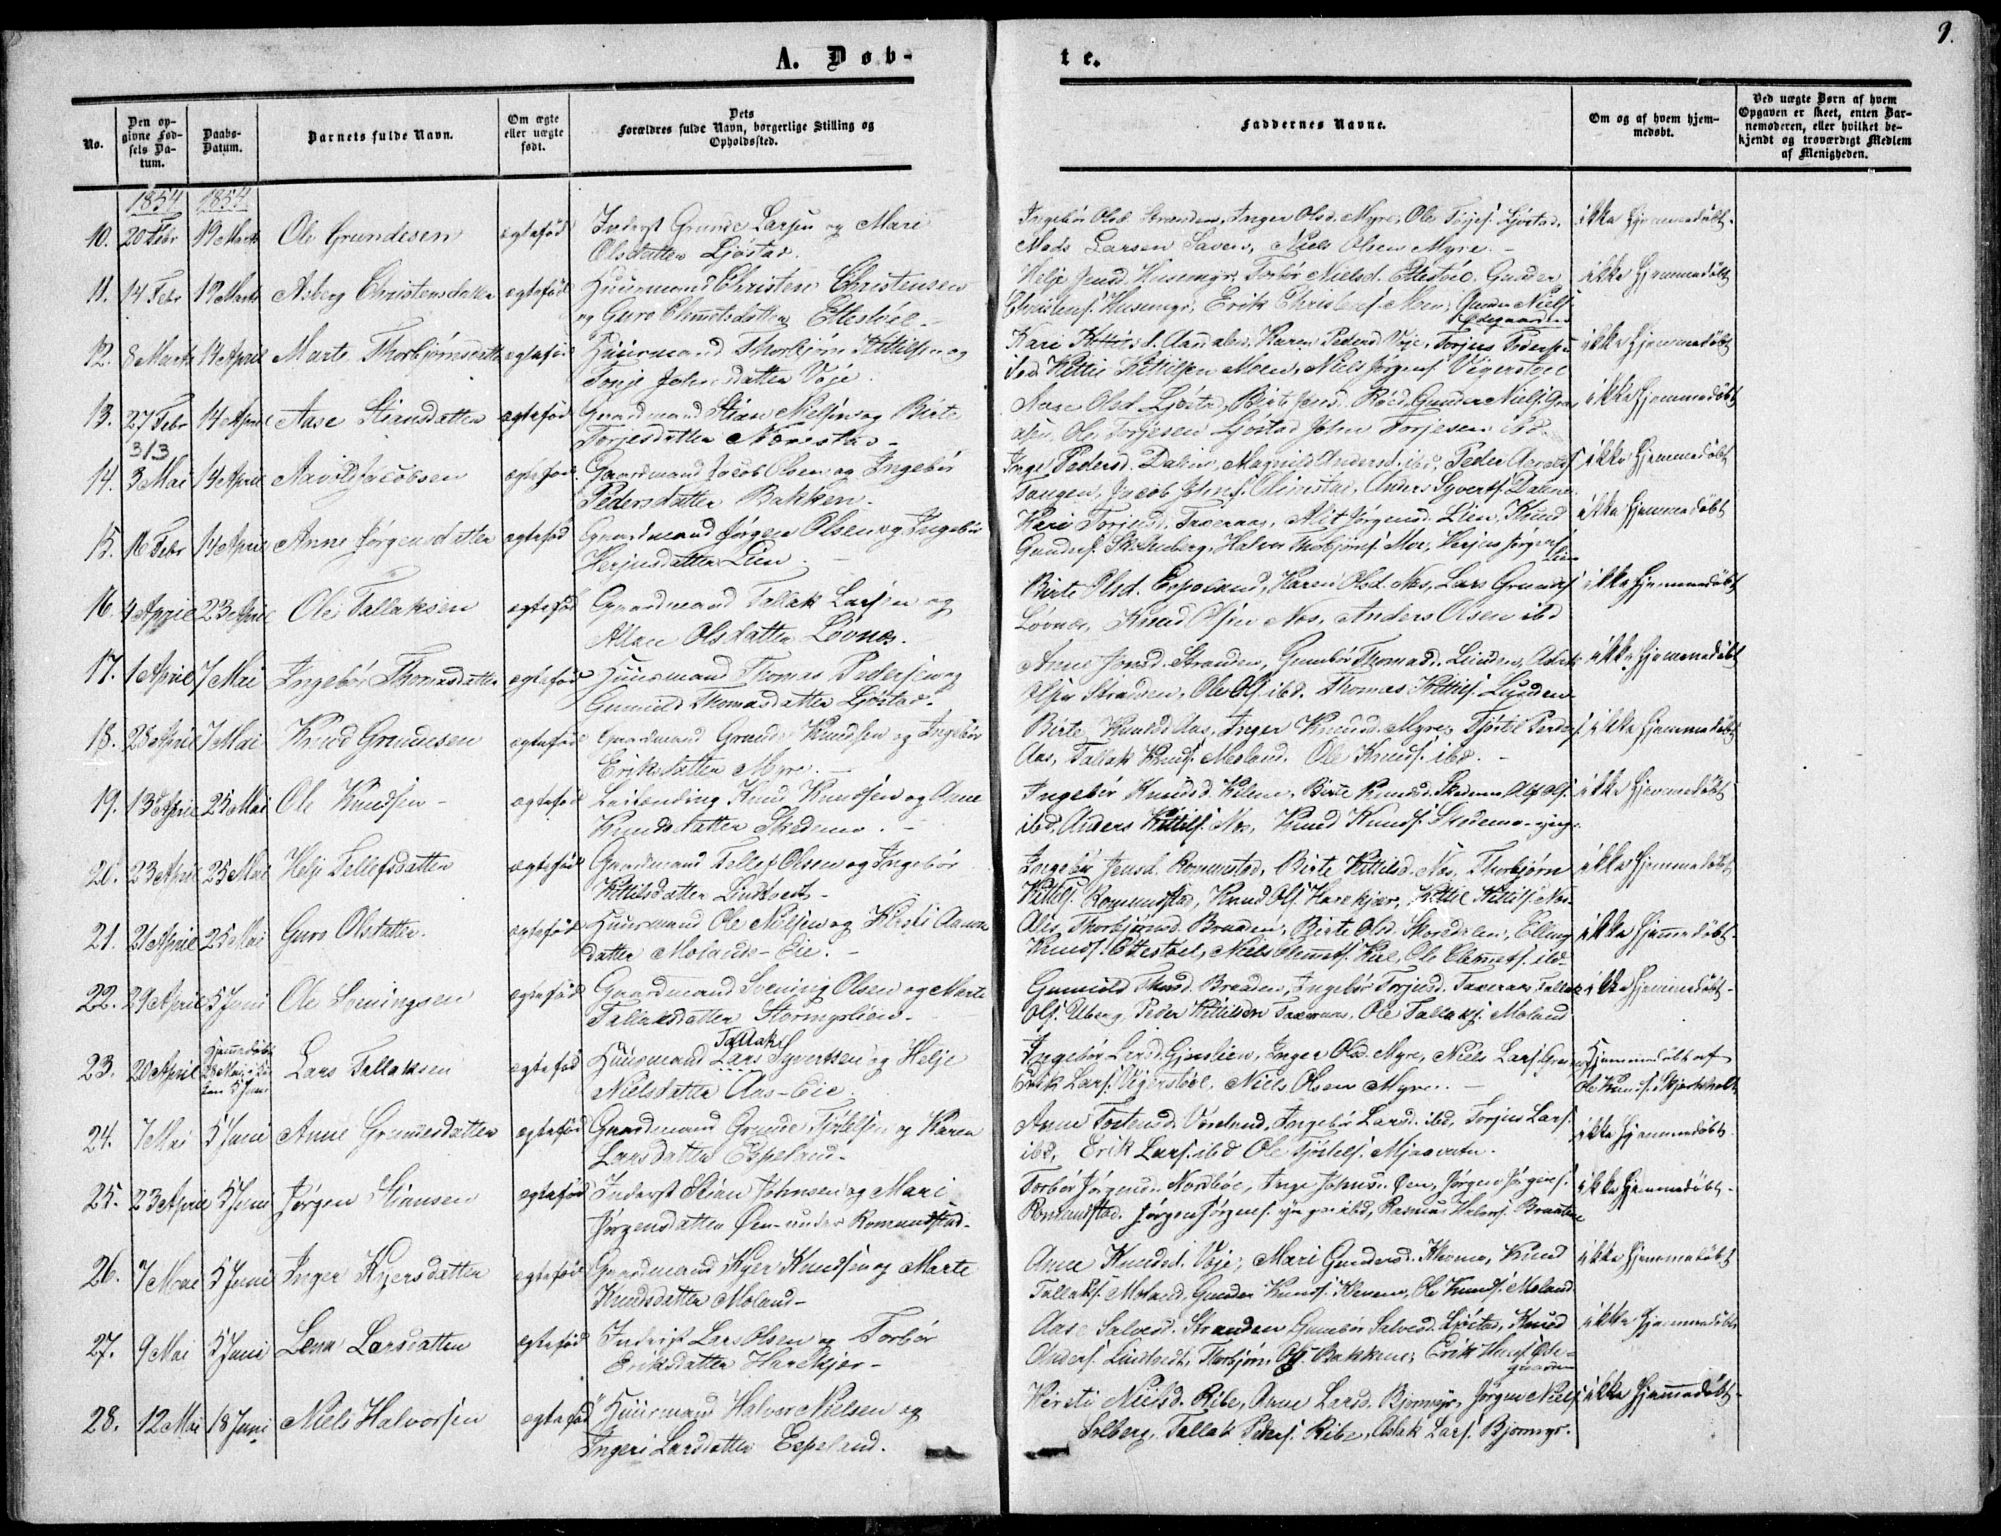 9.
A. Døb-
te.
No.
Den op-
givne Fød-
sels Da-
tum.
Daabs-
Datum.
Barnets fulde Navn.
Om ægte
eller uægte
født.
Dets
Forældres fulde Navn, borgerlige Stilling og
Opholdssted.
Faddernes Navne.
Om og af hvem hjem-
medøbt.
Ved uægte Børn af hvem
Opgaven er skeet, enten Bar-
nemoderen, eller hvilket be-
kjendt og troværdigt Medlem
af Menigheden.
1854 1854
10. 20 Febr 19 Marts Ole Grundesen ægtefød Inderst Grunde Larsen og Mari
Olsdatter Ljøstad.
Ingebør Olsd. Stranden, Inger Olsd. Myre, Ole Torjes. Ljøstad,
Mads Larsen Saven, Niels Olsen Myre.
ikke hjemmedøbt.
11. 14 Febr 19 Marts Asberg Christensdatter ægtefød Huusmand Christen Christensen
og Guro Clemetsdatter Ettestøl.
Helje Jensd. Husemyr, Torbør Nielsd. Ettestøl, Gunder
Christens. Husemyr, Erik Christens. Moen, Gunder Niels.
Ødegaarden
ikke hjemmedøbt
12. 8 Marts 14 April Marte Thorbjørnsdatter ægtefød Huusmand Thorbjørn Kittilsen og
Tonje Johnsdatter Voje.
Kari Kittilsd. Aasdalen, Karen Pedersd. Voje, Torjus Pedersen
ibd Kittil Kittilsen Moen, Niels Jørgens. Vigerstøl
ikke hjemmedøbt
13. 27 Febr 14 April Aase Stiansdatter ægtefød Gaardmand Stian Nielsen og Birte
Torjesdatter Nævestad.
Aase Olsd. Ljøstad, Birte Jensd. Røed, Gunder Niels.
Ole Torjesen Ljøstad John Torjesen ibd.
ikke hjemmedøbt
3/3
14. 3 Mai 14 April Aavild Jacobsen ægtefød. Gaardmand Jacob Olsen og Ingebør
Pedersdatter Bakken.
Inge Pedersd. Dalen, Magnild Andersd. ibd, Peder Aavolds.
Tangen, Jacob Johns. Olimstad, Anders Syverts. Dalen
ikke hjemmedøbt
15. 16 Febr 14 April Anne Jørgensdatter ægtefød Gaardmand Jørgen Olsen og Ingebør
Herjusdatter Lien.
Kari Torjusd. Taxeraas, Alit Jørgensd. Lien, Knud
Gunders. Halvor Thorbjørns. Moe, Herjus Jørgens.
Lien
ikke hjemmedøbt
16. 4 April 23 April Ole Tallaksen ægtefød Gaardmand Tallak Larsen og
Olsdatter Løvnes.
Birte Olsd. Espeland, Karen Olsd. Nes, Lars Grundes.
Løvnes, Knud Olsen Nes, Anders Olsen ibd
ikke hjemmedøbt
17. 1 April 7 Mai Ingebør Thomasdatter ægtefød Huusmand Thomas Pedersen og
Gunvild Thomasdatter Ljøstad.
Anne Jonsd. Stranden, Gunbør Thomasd. Lunden, Aslak
Olsen Stranden, Ole Ols. ibd. Thomas Kittils. Lunden
ikke hjemmedøbt
18. 25 April 7 Mai Knud Grundesen ægtefød Gaardmand Grunde Knudsen og Ingebør
Eriksdatter Myre.
Birte Knudsd. Aas, Inger Knudsd. Myre, Tjøstel Peders.
Aas, Tallak Knuds. Moland. Ole Knuds. ibd.
ikke hjemmedøbt
19. 13 April 25 Mai Ole Knudsen ægtefød Leilending Knud Knudsen og Anne
Knudsdatter Skedemo.
Ingebør Knudsd. Kilen, Birte Knudsd. Skedemo, Ols.
ibd, Anders Kittils. Nes, Knud Knuds. Skodemo yng.
ikke hjemmedøbt
20. 23 April 25 Mai Helje Tellefsdatter ægtefød Gaardmand Tellef Olsen og Ingebør
Kittilsdatter Lindtvedt.
Ingebør Jensd. Romunstad, Birte Kittilsd. Nes, Thorbjørn
Kittils. Romundstad, Knud Ols. Harekjær, Kittil Kittils. Nes.
ikke hjemmedøbt
21. 21 April 25 Mai Guro Olsdatter. ægtefød Huusmand Ole Nielsen og Kirsti Aanon
datter Molands-Eie.
Alis Thorbjørnsd. Braaden, Birte Olsd. Skoredalen, Elling
Knuds. Ettestøl, Niels Clemets. Kiil, Ole Clemets. ibd.
ikke hjemmedøbt.
22. 29 April 5 Juni Ole Sveningsen ægtefød Gaardmand Svening Olsen og Marte
Tallaksdatter Stormyrlien.
Gunvild Braaden, Ingebør Torjusd. Taxeraas, Tallak
Ols. Uberg, Peder Kittilsen Taxeraas, Ole Tallaks. Moland
ikke hjemmedøbt.
23. 20 April Hjemmedøbt
28 Mai,
5 Juni Lars Tallaksen ægtefød Tallak
Huusmand Lars Syvertsen og Helje
Nielsdatter Aas-Eie
Ingebør Larsd. Gjerslien, Inger Olsd. Myre, Niels Lars.
Erik Lars. Vigerstøl, Niels Olsen Myre.
Hjemmedøbt af
Ole Knuds. Skjerkholt
24. 7 Mai 5 Juni Anne Grundesdatter ægtefød Gaardmand Grunde Tjøstelsen og Karen
Larsdatter Espeland.
Anne Tostensd. Voreland, Ingebør Larsd. ibd, Torjus Lars.
ibd, Erik Lars. ibid Ole Tjøstels. Mjaavatn.
ikke hjemmedøbt
25. 23 April 5 Juni Jørgen Stiansen ægtefød Inderst Stian Johnsen og Mari
Jørgensdatter Øen under Romundstad.
Torbør Jørgensd. Nordbøe, Inge Johnsd. Øen, Jørgen Jørgens.
Romundstad. Jørgen Jørgens. yngre ibd, Rasmus Halvors. Braaten
ikke hjemmedøbt.
26. 7 Mai 5 Juni Inger Kjersdatter ægtefød Gaardmand Kjer Knudsen og Marte
Knudsdatter Moland.
Anne Knudsd. Voje, Mari Gundersd. Kleven, Knud
Tallaks. Moland, Gunder Knuds. Kleven, Ole Knuds. Moland
ikke hjemmedøbt
27. 9 Mai 5 Juni Lena Larsdatter ægtefød Inderst Lars Olsen og Torbør
Eriksdatter Harekjær.
Aase Salvesd. Stranden Gunbør Salvesd. Ljøstad, Knud
Anders. Lindtvedt, Thorbjørn Ols. Bakken, Erik Øde-
gaarden
ikke hjemmedøbt
28. 12 Mai 18 Juni Niels Halvorsen ægtefød Huusmand Halvor Nielsen og
Ingeri Larsdatter Espeland.
Kirsti Nielsd. Ribe, Anne Larsd. Bjornmyr, Jørgen Niels.
Solberg, Tallak Peders. Ribe, Aslak Lars. Bjornmyr.
ikke hjemmedøbt.